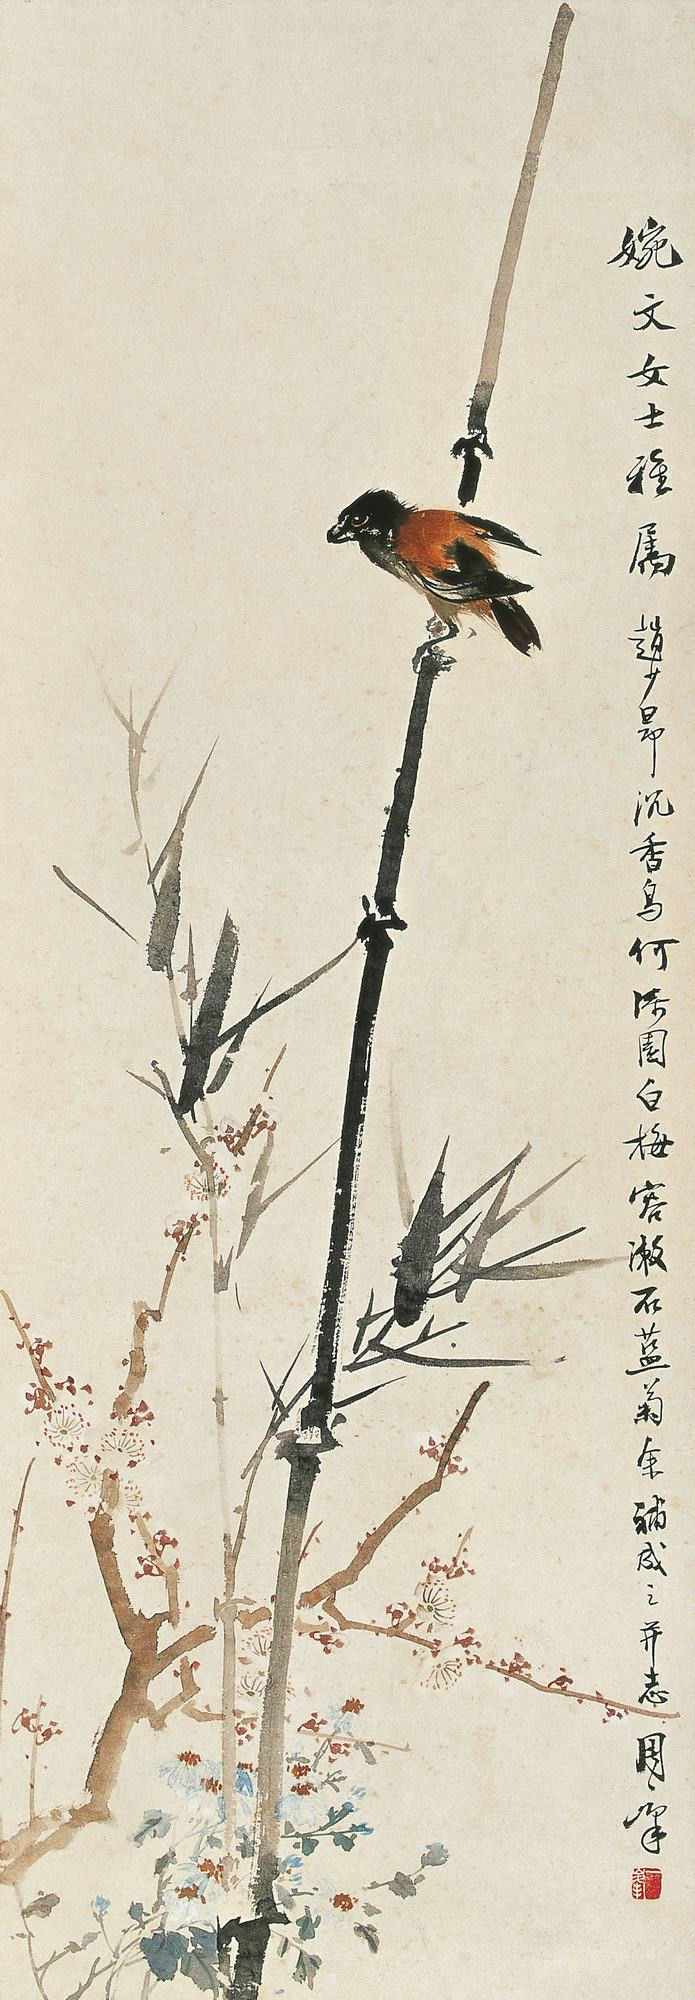 婉文女士雅属 趙少昂沉香鸟何漆園白梅容漱石蓝菊余補成之并志 周一峯